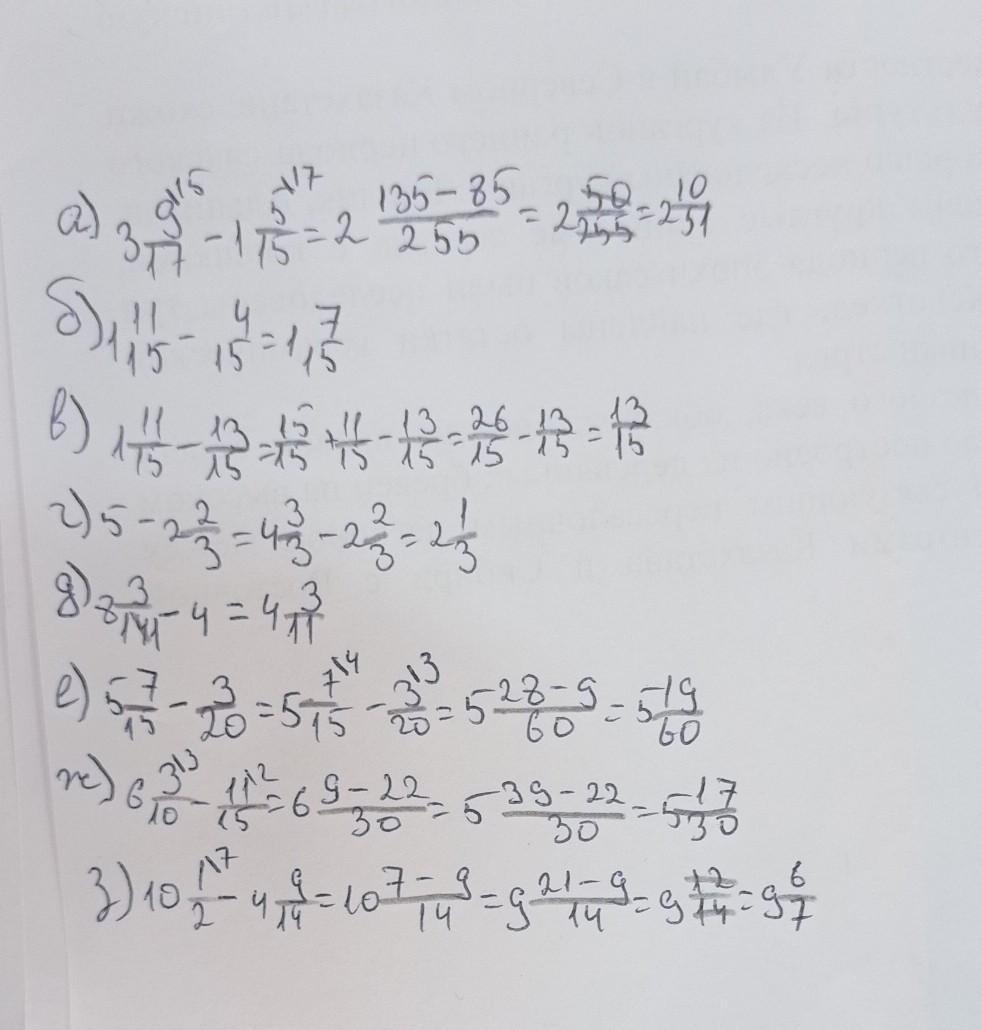 а) 3 9\15/17 - 1 5\17/15 = 2 135-85/255 = 2 50/255 = 2 10/51
б) 1 11/15 - 4/15 = 1 7/15
в) 1 11/15 - 13/15 = 15/15 + 11/15 - 13/15 = 26/15 - 13/15 = 13/15
г) 5 - 2 2/3 = 4 3/3 - 2 2/3 = 2 1/3
д) 8 3/11 - 4 = 4 3/11
е) 5 7/15 - 3/20 = 5 7\4/15 - 3\3/20 = 5 28-9/60 = 5 19/60
ж) 6 3\3/10 - 11\2/15 = 6 9-22/30 = 5 39-22/30 = 5 17/30
з) 10 1\7/2 - 4 9/14 = 10 7-9/14 = 9 21-9/14 = 9 12/14 = 9 6/7